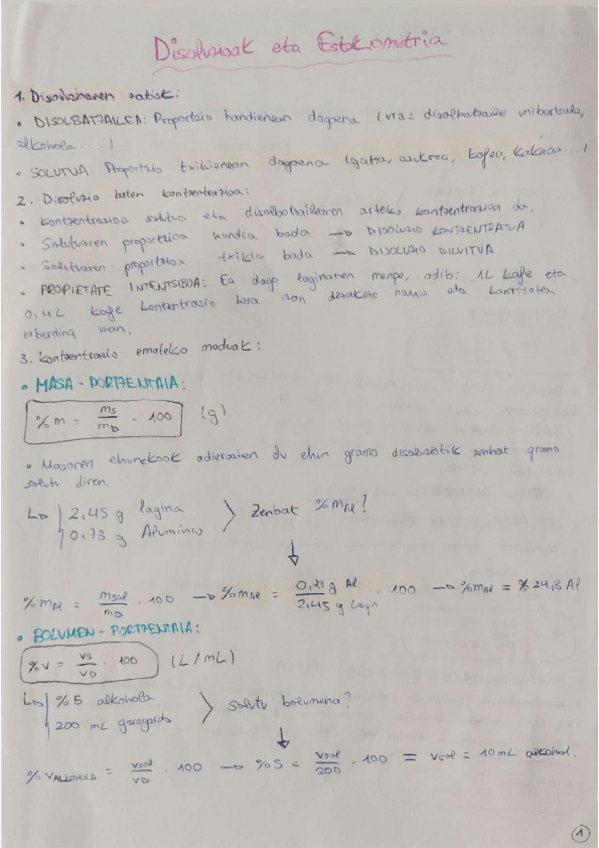 Disoluzioak eta Estekiometria
1. Disoluzioaren zatiak:
• DISOLBATZAILEA: Proportzio handienean dagoena (ura = disolbatzaile unibertsala,
alkohola...)
• SOLUTUA: Proportzio txikienean dagoena (gatza, azukrea, kafea, kakaoa...)
2. Disoluzio baten kontzentrazioa:
• Kontzentrazioa solutua eta disolbatzailearen arteko kontzentrazioa da.
• Solutuaren proportzioa handia bada → DISOLUZIO KONTZENTRATUA
• Solutuaren proportzioa txikia bada → DISOLUZIO DILUITUA
• PROPIETATE INTENTSIBOA: Ez dago laginaren menpe, adib: 1L kafe eta
0,4L kafe kontzentrazio bera izan dezakete nahiz eta kantitatea
ezberdina izan.
3. Kontzentrazio emateko moduak:
• MASA-PORTZENTAIA:
%m = ms/mD · 100 (g)
• Masaren ehunekoak adierazten du ehun gramo disoluziotik zenbat gramo
solutu diren.
↳ 2,45 g lagina
0,73 g Aluminio > Zenbat %mAl?
↓
%mAl = msol/mD · 100 → %mAl = 0,73 g Al/2,45 g Lagin · 100 → %mAl = %29,8 Al
• BOLUMEN-PORTZENTAIA:
%V = Vs/VD · 100 (L/mL)
↳ %5 alkohola
200 mL garagardo > Solutu bolumena?
↓
%VALKOHOLA = Vsol/VD · 100 → %5 = Vsol/200 · 100 = Vsol = 10 mL alkohol.
1